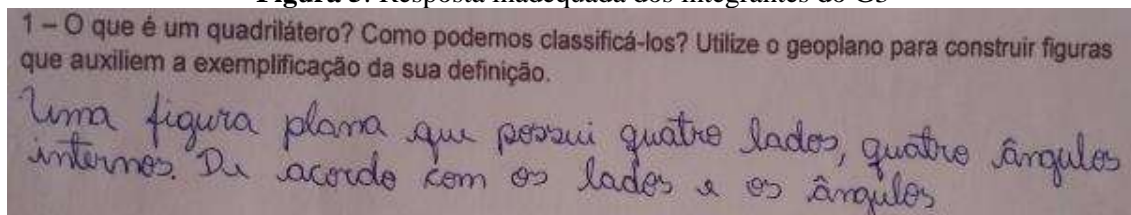 Figura 3. Resposta inadequada dos integrantes do G3
1 – O que é um quadrilátero? Como podemos classificá-los? Utilize o geoplano para construir figuras
que auxiliem a exemplificação da sua definição.
Uma figura plana que possui quatro lados, quatro ângulos
internos. De acordo com os lados e os ângulos